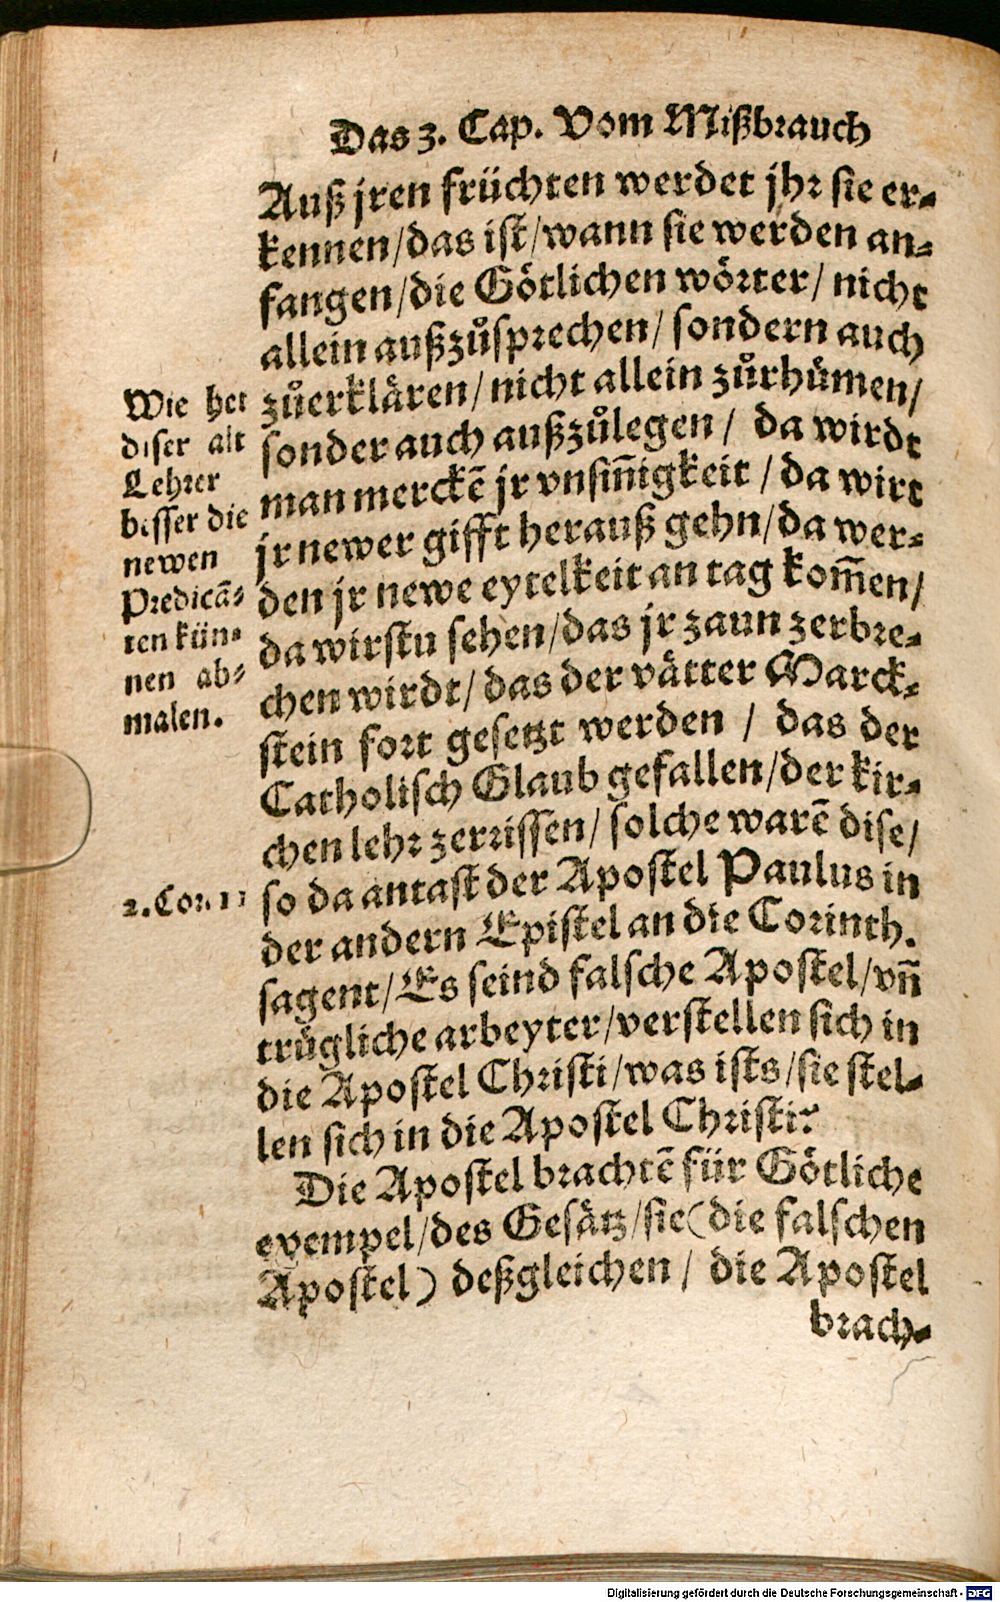 Das 3. Cap. Vom Mißbrauch
Auß jren früchten werdet jhr sie er-
kennen/das ist/wann sie werden an-
fangen/die Götlichen wörter/ nicht
allein außzůsprechen/ sondern auch
zůerklären/ nicht allein zůrhümen/
sonder auch außzůlegen/ da wirdt
man merckē jr vnsiñigkeit / da wirt
jr newer gifft herauß gehn/da wer-
den jr newe eytelkeit an tag kom̃en/
da wirstu sehen/das jr zaun zerbre-
chen wirdt/ das der vätter Marck-
stein fort gesetzt werden / das der
Catholisch Glaub gefallen/der kir-
chen lehr zerrissen/ solche warē dise/
so da antast der Apostel Paulus in
der andern Epistel an die Corinth.
sagent/Es seind falsche Apostel/vñ
trügliche arbeyter/verstellen sich in
die Apostel Christi/was ists/sie stel-
len sich in die Apostel Christi?
Die Apostel brachtē für Götliche
exempel/des Gesätz/sie(die falschen
Apostel) deßgleichen/ die Apostel
brach-
Wie het
diser alt
Lehrer
besser die
newen
Predicā-
ten kün-
nen ab-
malen.
2.Cor. 11
Digitalisierung gefördert durch die Deutsche Forschungsgemeinschaft - DFG